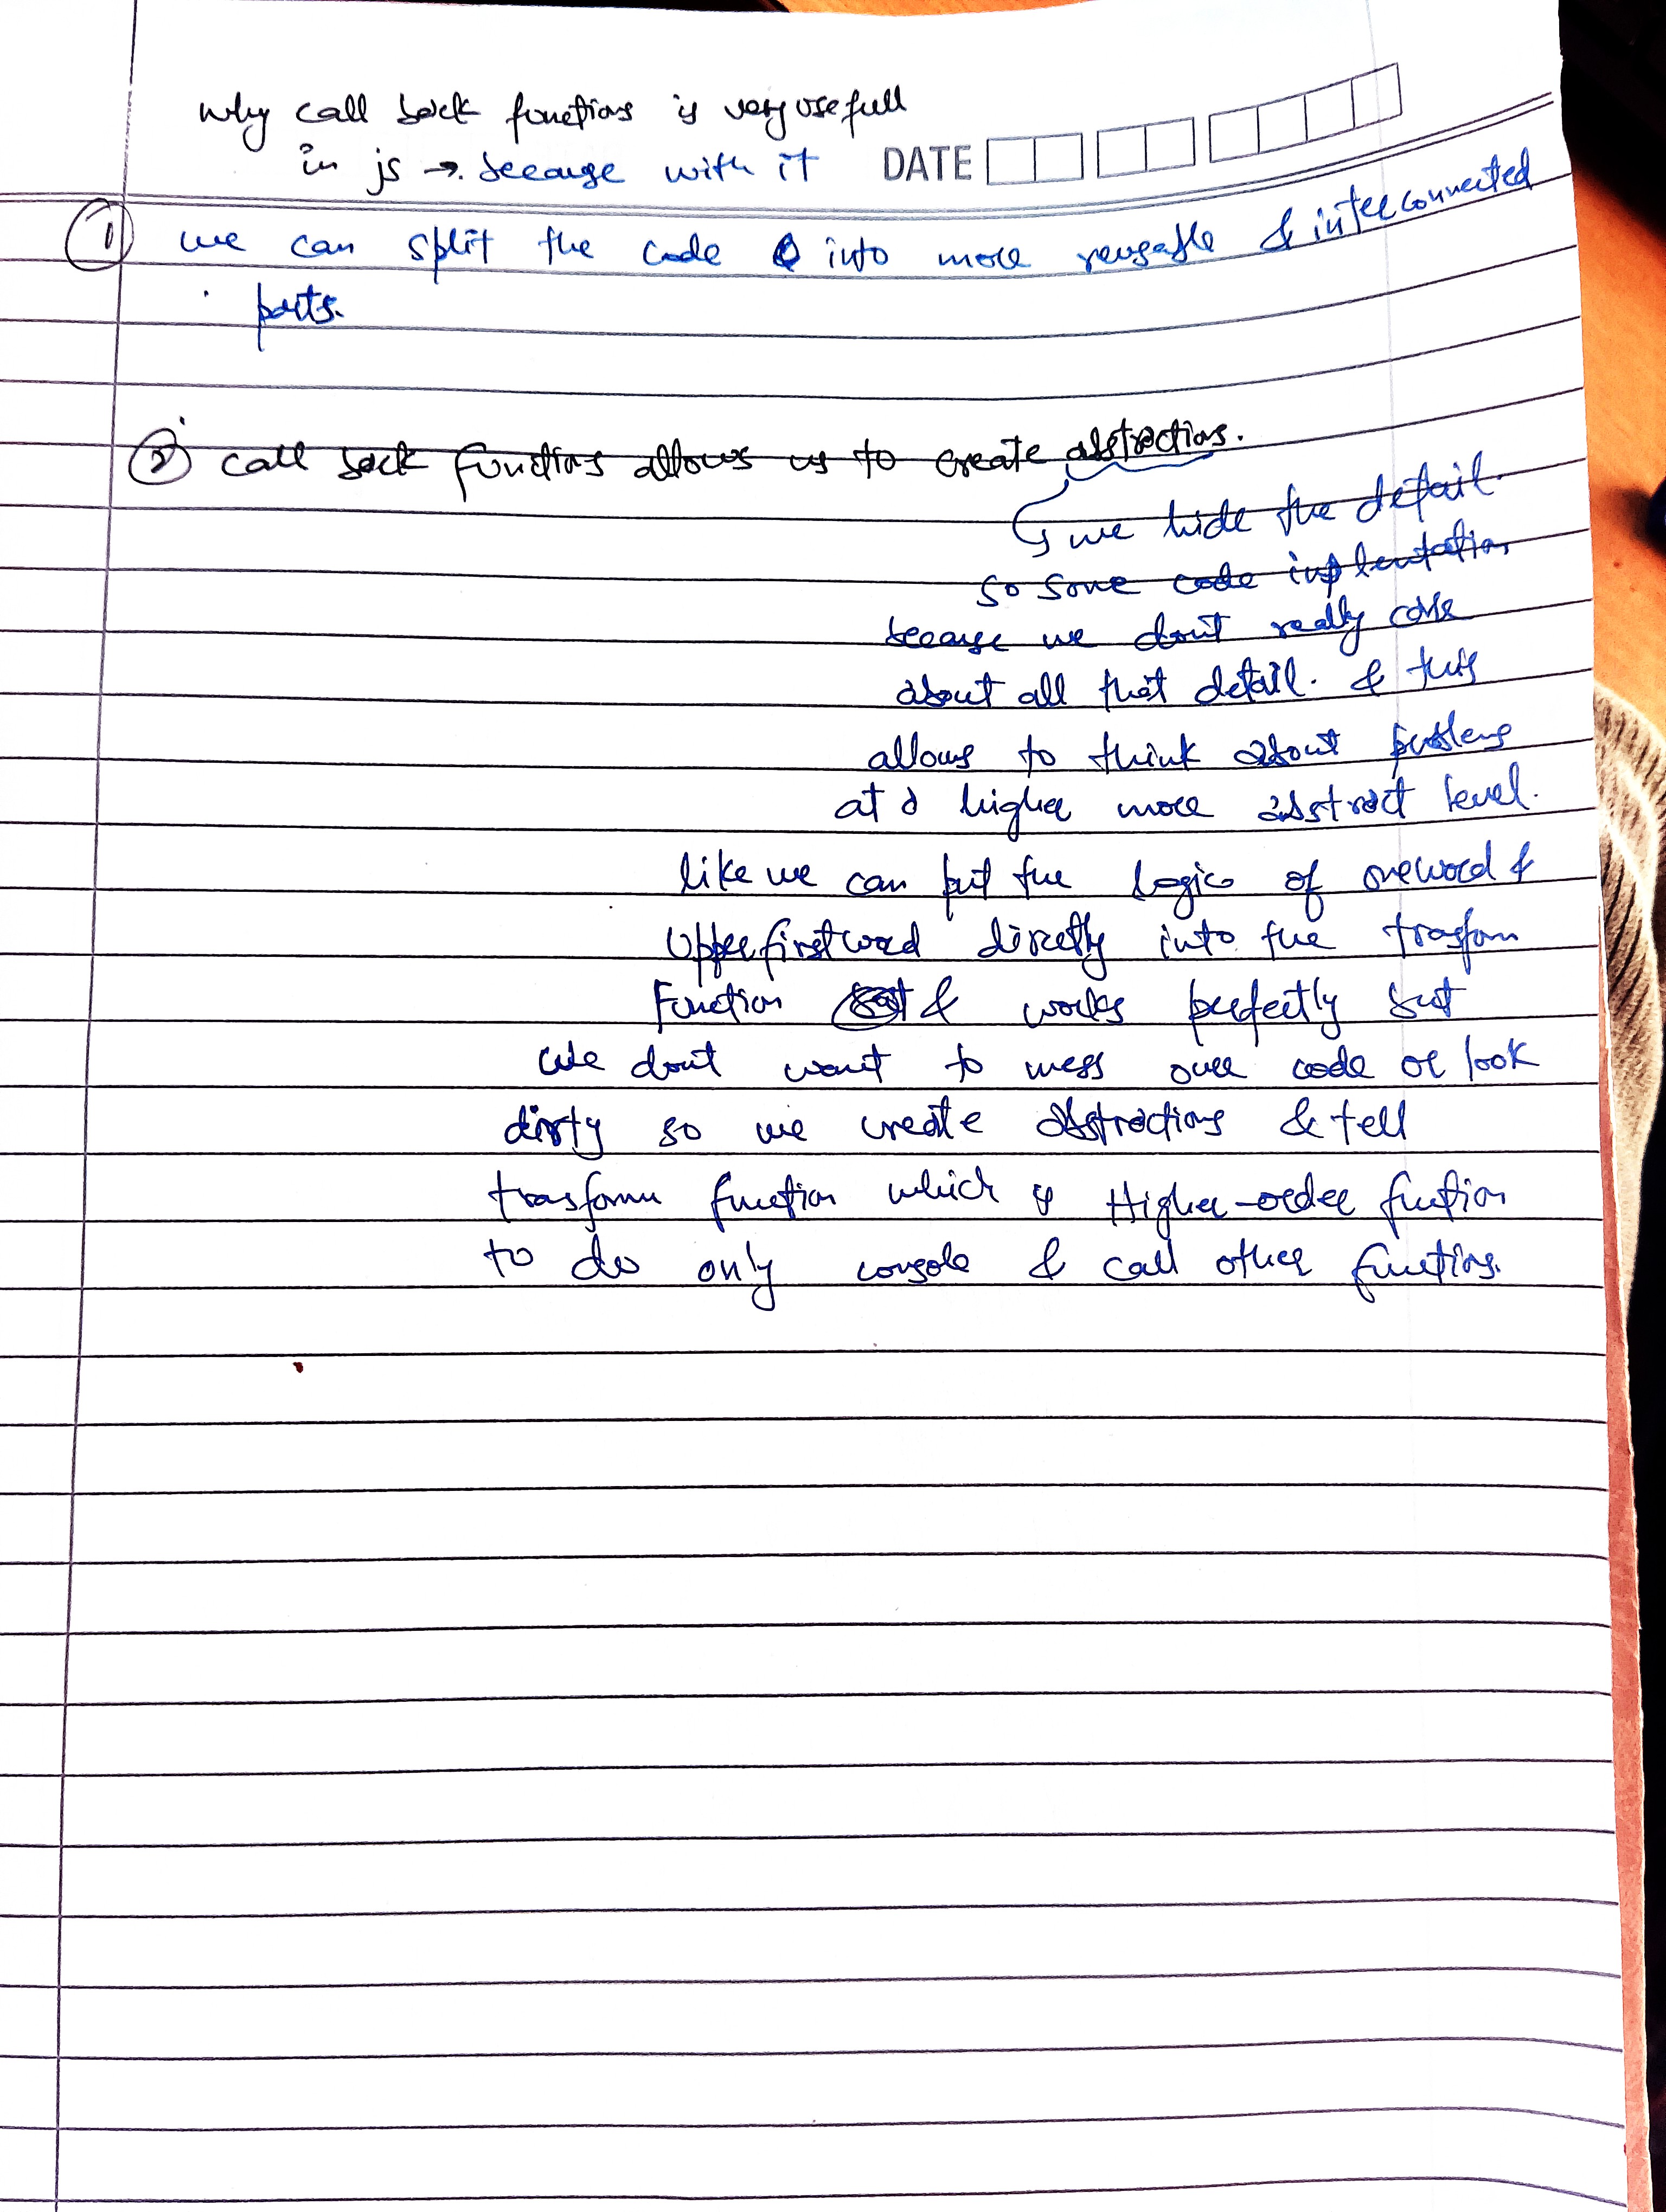 why call back functions is very usefull
in js → because with it
DATE
① we can split the code into more reusable & interconnected
parts.
② call back functions allows us to create abstractions.
↳ we hide the detail.
so some code implentation
because we don't really care
about all that detail. & this
allows to think about problems
at a higher more abstract level.
like we can put the logic of oneword &
Upperfirstword directly into the trasfom
function & works perfectly but
we dont want to mess over code or look
dirty so we create abstractions & tell
trasform function which is Higher-order fuction
to do only console & call other functions.